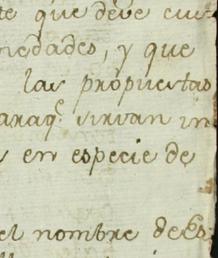 te que deve cui-
iedades, y que
las propuestas
araq.e sirvan in
en especie de
el nombre de